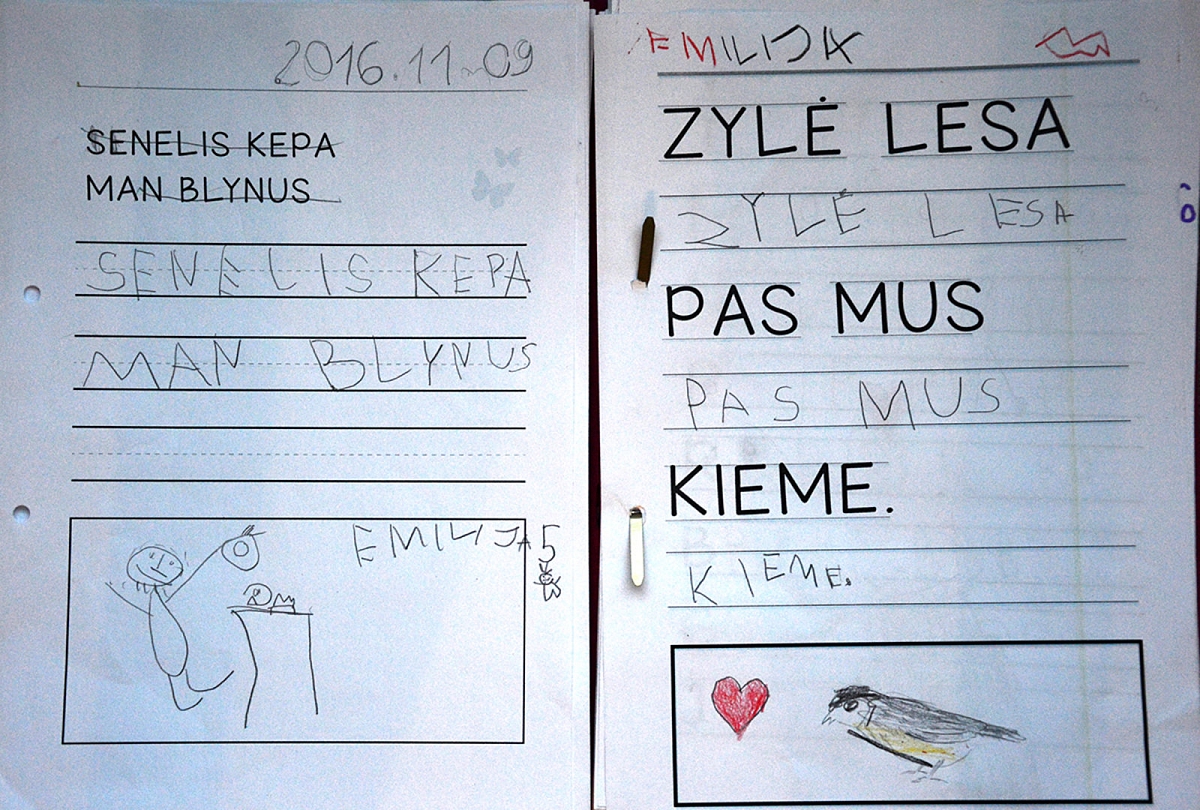 2016.11.09
SENELIS KEPA
MAN BLYNUS
SENELIS KEPA
MAN BLYNUS
EMILIJA 5
EMILIJA
ZYLĖ LESA
ZYLĖ LESA
PAS MUS
PAS MUS
KIEME.
KIEME.